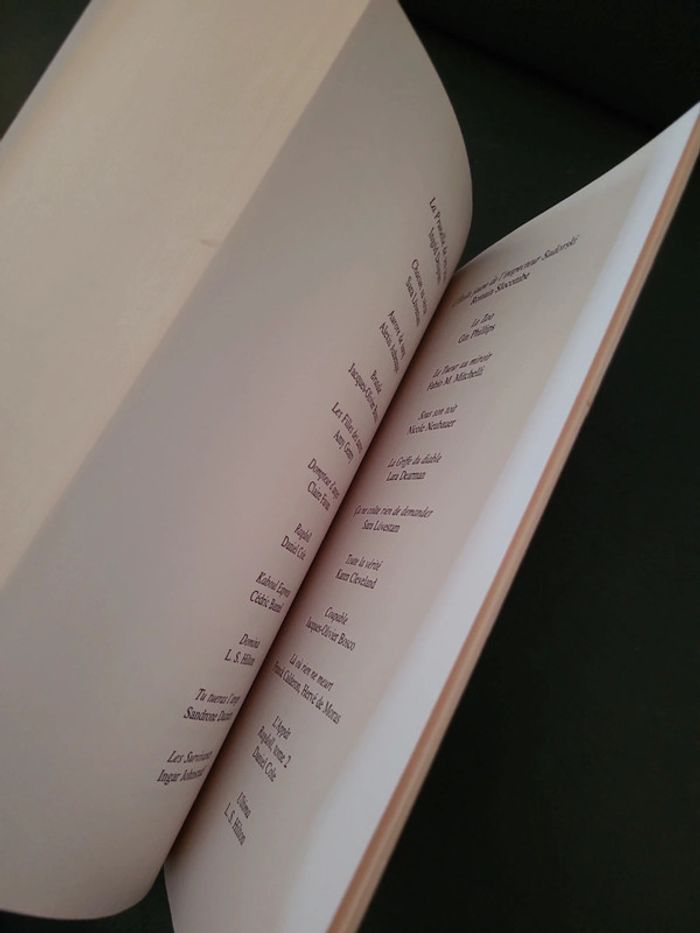 La Prunelle de
Ingrid
Chacun sa
Sara
Aurore de sang
Alexis Aubenque
Brutale
Jacques-Olivier
Les Filles des
Amy Gentry
Dompteur d'anges
Claire Favan
Ragdoll
Daniel Cole
Kaboul Express
Cédric Bannel
Domina
L. S. Hilton
Tu tueras l'ange
Sandrone
Les Survivants
Ingar Johnsrud
L'Étoile jaune de l'inspecteur Sadorski
Romain Slocombe
Le Zoo
Gin Phillips
Le Tueur au miroir
Fabio M. Mitchelli
Sous son toit
Nicole Neubauer
La Griffe du diable
Lara Dearman
Ça ne coûte rien de demander
Sara Lövestam
Toute la vérité
Karen Cleveland
Coupable
Jacques-Olivier Bosco
Là où rien ne meurt
Franck Calderon, Hervé de Moras
L'Appât
Ragdoll, tome 2
Daniel Cole
Ultima
L. S. Hilton